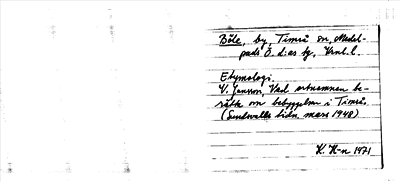 Böle, by, Timrå sn, Medel-
pads Ö. d:as kg, Vrnl. l.
Etymologi.
V. Jansson, Vad ortnamnen be-
rätta om bebyggelsen i Timrå.
(Sundsvalls tidn. mars 1948)
K. H-n 1971